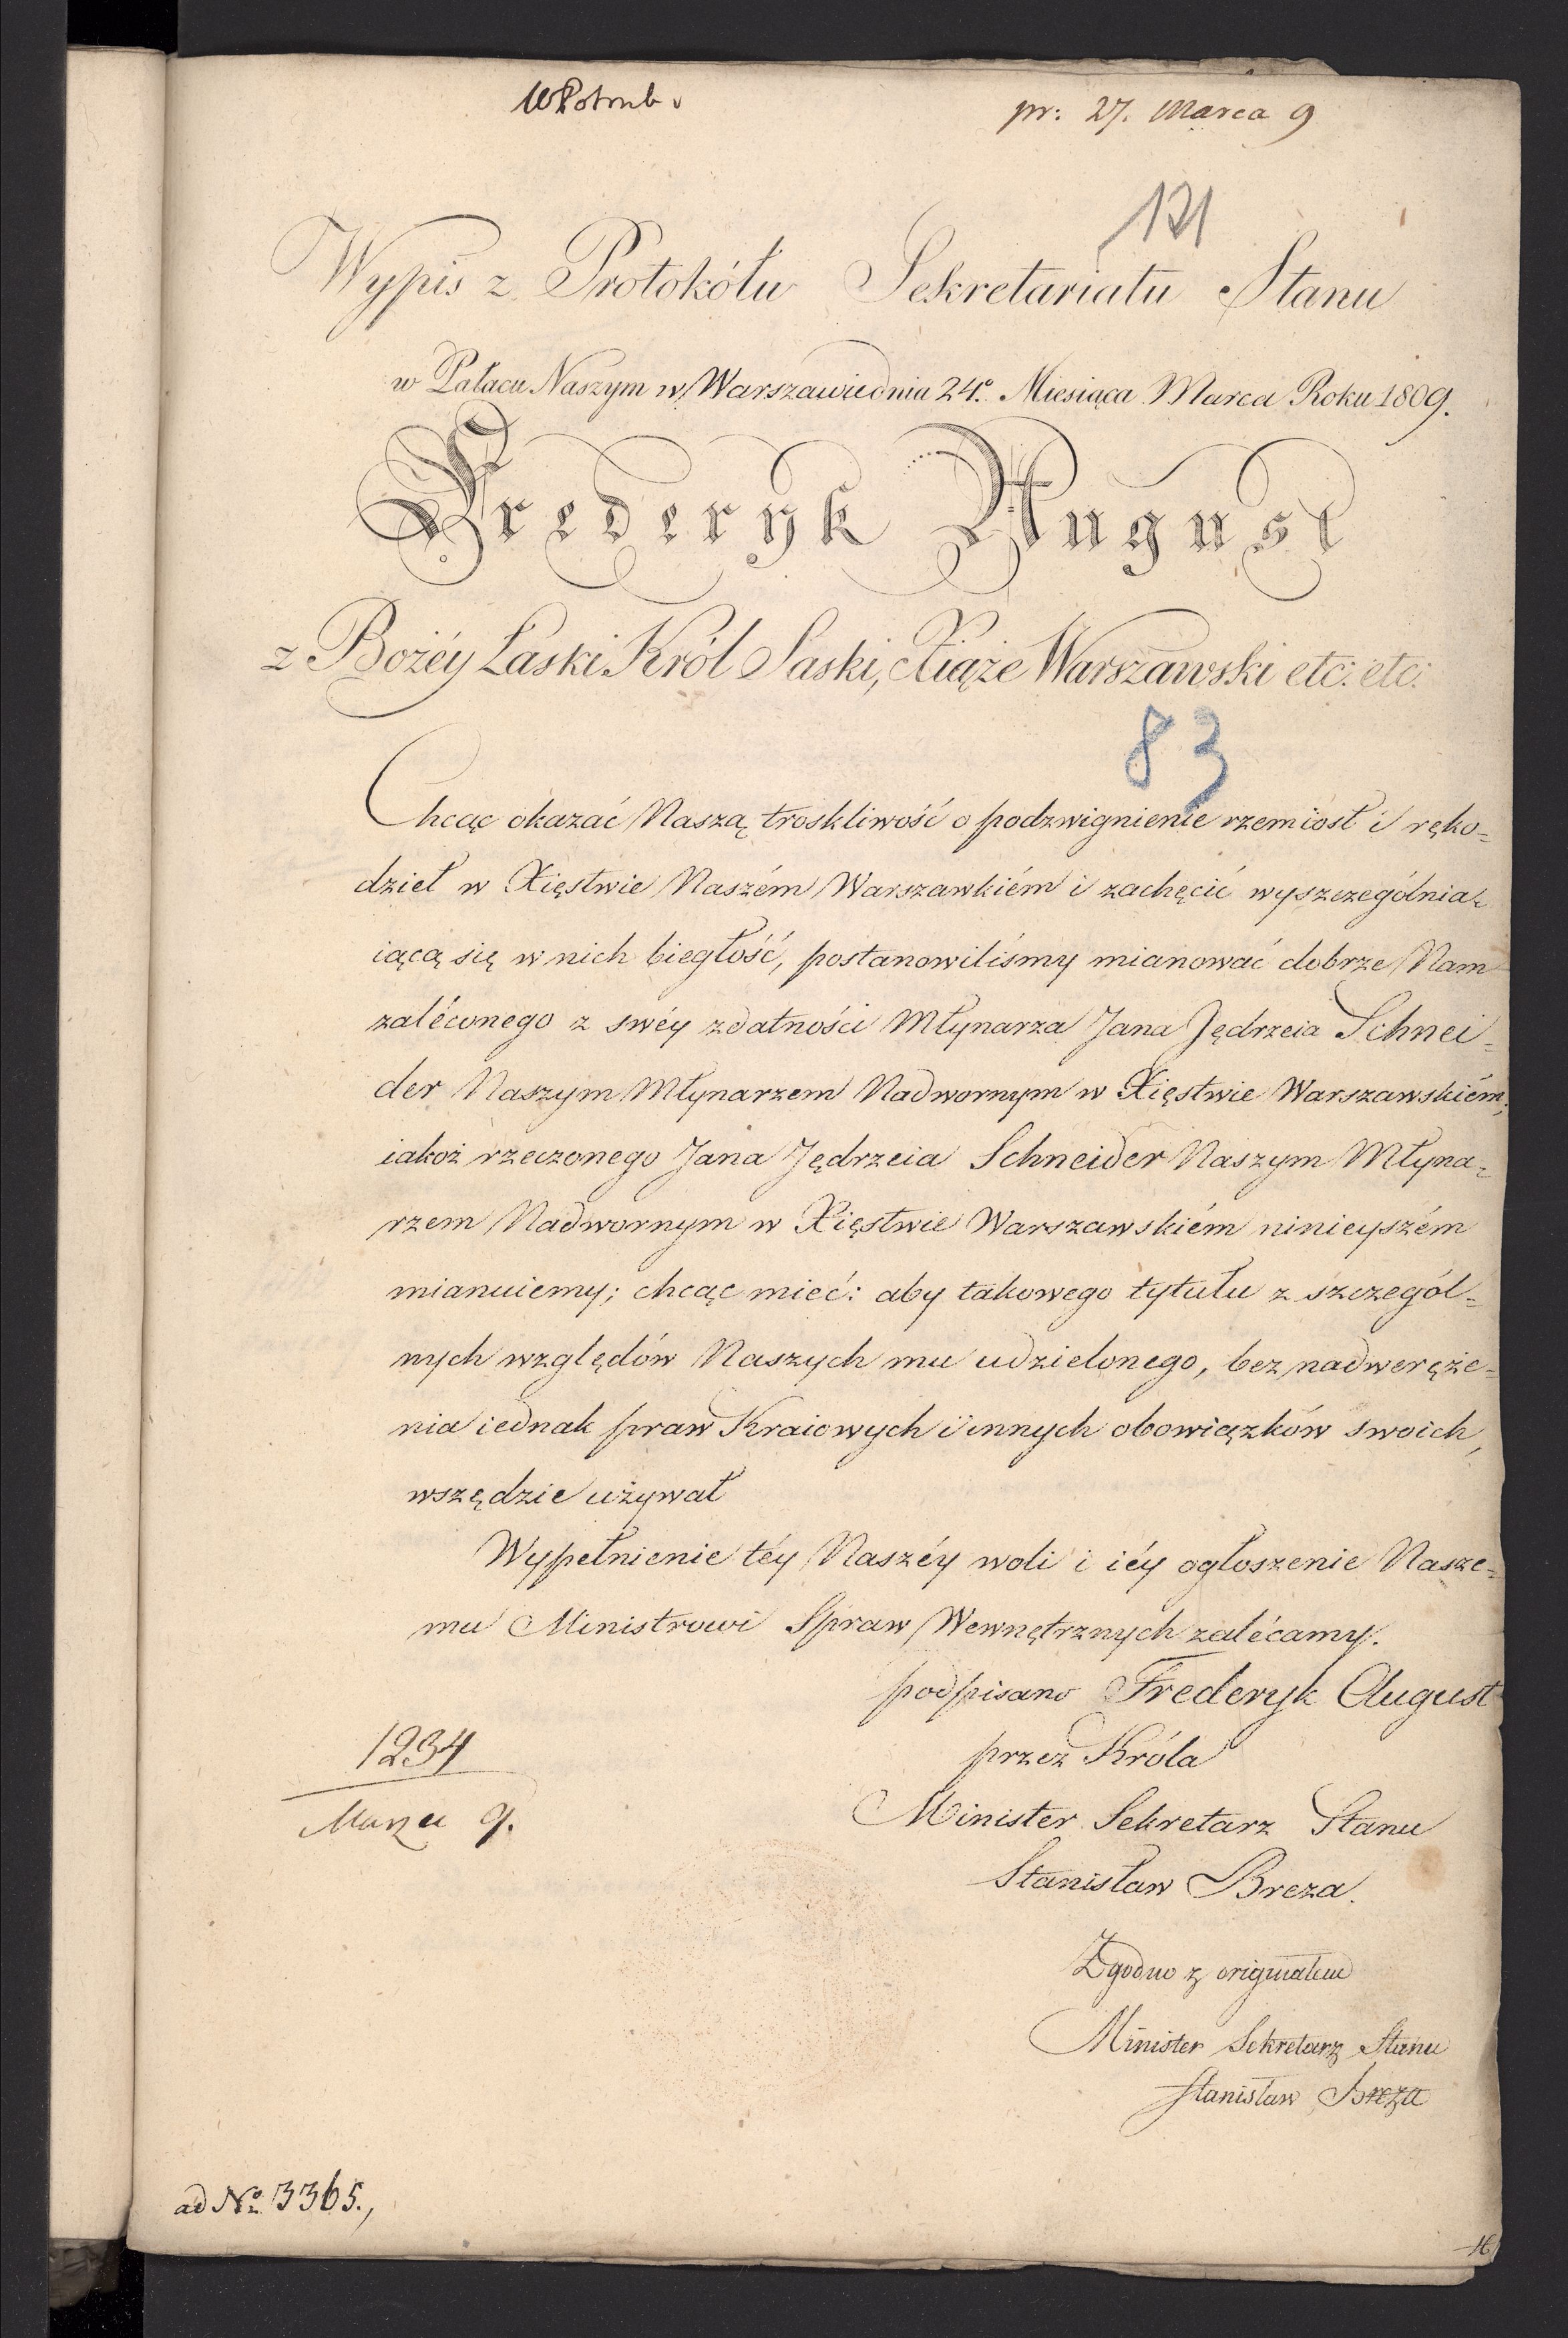 pr: 27. Marca 9
121
Wypis z Protokółu Sekretariatu Stanu
w Pałacu Naszym w Warszawie dnia 24.° Miesiąca Marca Roku 1809.
Frederyk August
z Bożéy Łaski Król Saski, Xiąże Warszawski etc: etc:
83
Chcąc okazać Naszą troskliwość o podzwignienie rzemiosł i ręko=
dzieł w Xięstwie Naszém Warszawkiém i zachęcić wyszczególnia=
iącą się w nich biegłość, postanowiliśmy mianować dobrze Nam
zaléconego z swéy zdatności Młynarza Jana Jędrzeia Schnei=
der Naszym Młynarzem Nadwornym w Xięstwie Warszawskiém;
iakoż rzeczonego Jana Jędrzeia Schneider Naszym Młyna=
rzem Nadwornym w Xięstwie Warszawskiém ninieyszém
mianuiemy; chcąc mieć: aby takowego tytułu z szczegól=
nych względów Naszych mu udzielonego, bez nadweręże=
nia iednak praw Kraiowych i innych obowiązków swoich,
wszędzie używał
Wypełnienie téy Naszéy woli i iéy ogłoszenie Nasze=
mu Ministrowi Spraw Wewnętrznych zalécamy.
podpisano Frederyk August
przez Króla
Minister Sekretarz Stanu
Stanisław Breza.
1234
Marca 9.
Zgodno z originałem
Minister Sekretarz Stanu
Stanisław Breza
ad No 3365.,
16